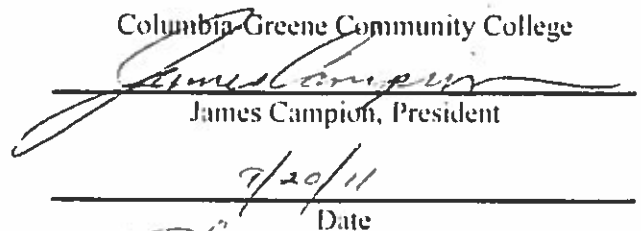 Columbia-Greene Community College
James Campion
James Campion, President
7/20/11
Date